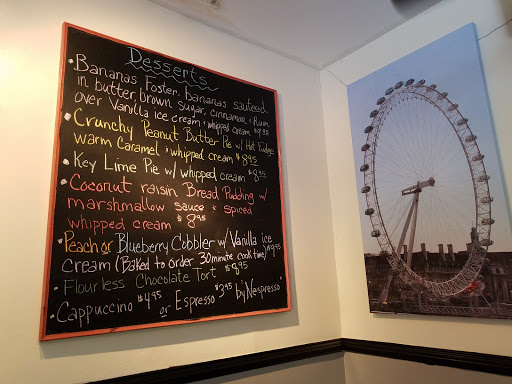 Desserts
• Bananas Foster. bananas sauteed
in butter, brown sugar, cinnamon & Rum
over Vanilla ice cream & whipped cream $9.95
• Crunchy Peanut Butter Pie w/ Hot Fudge
warm Caramel & whipped cream $8.95
• Key Lime Pie w/ whipped cream $8.95
• Coconut raisin Bread Pudding w/
marshmallow sauce & spiced
whipped cream $8.95
• Peach or Blueberry Cobbler w/ Vanilla ice
cream (Baked to order 30 minute cook time) $9.95
• Flourless Chocolate Tort $8.95
• Cappuccino $4.95 or Espresso $3.95 by "Nespresso"